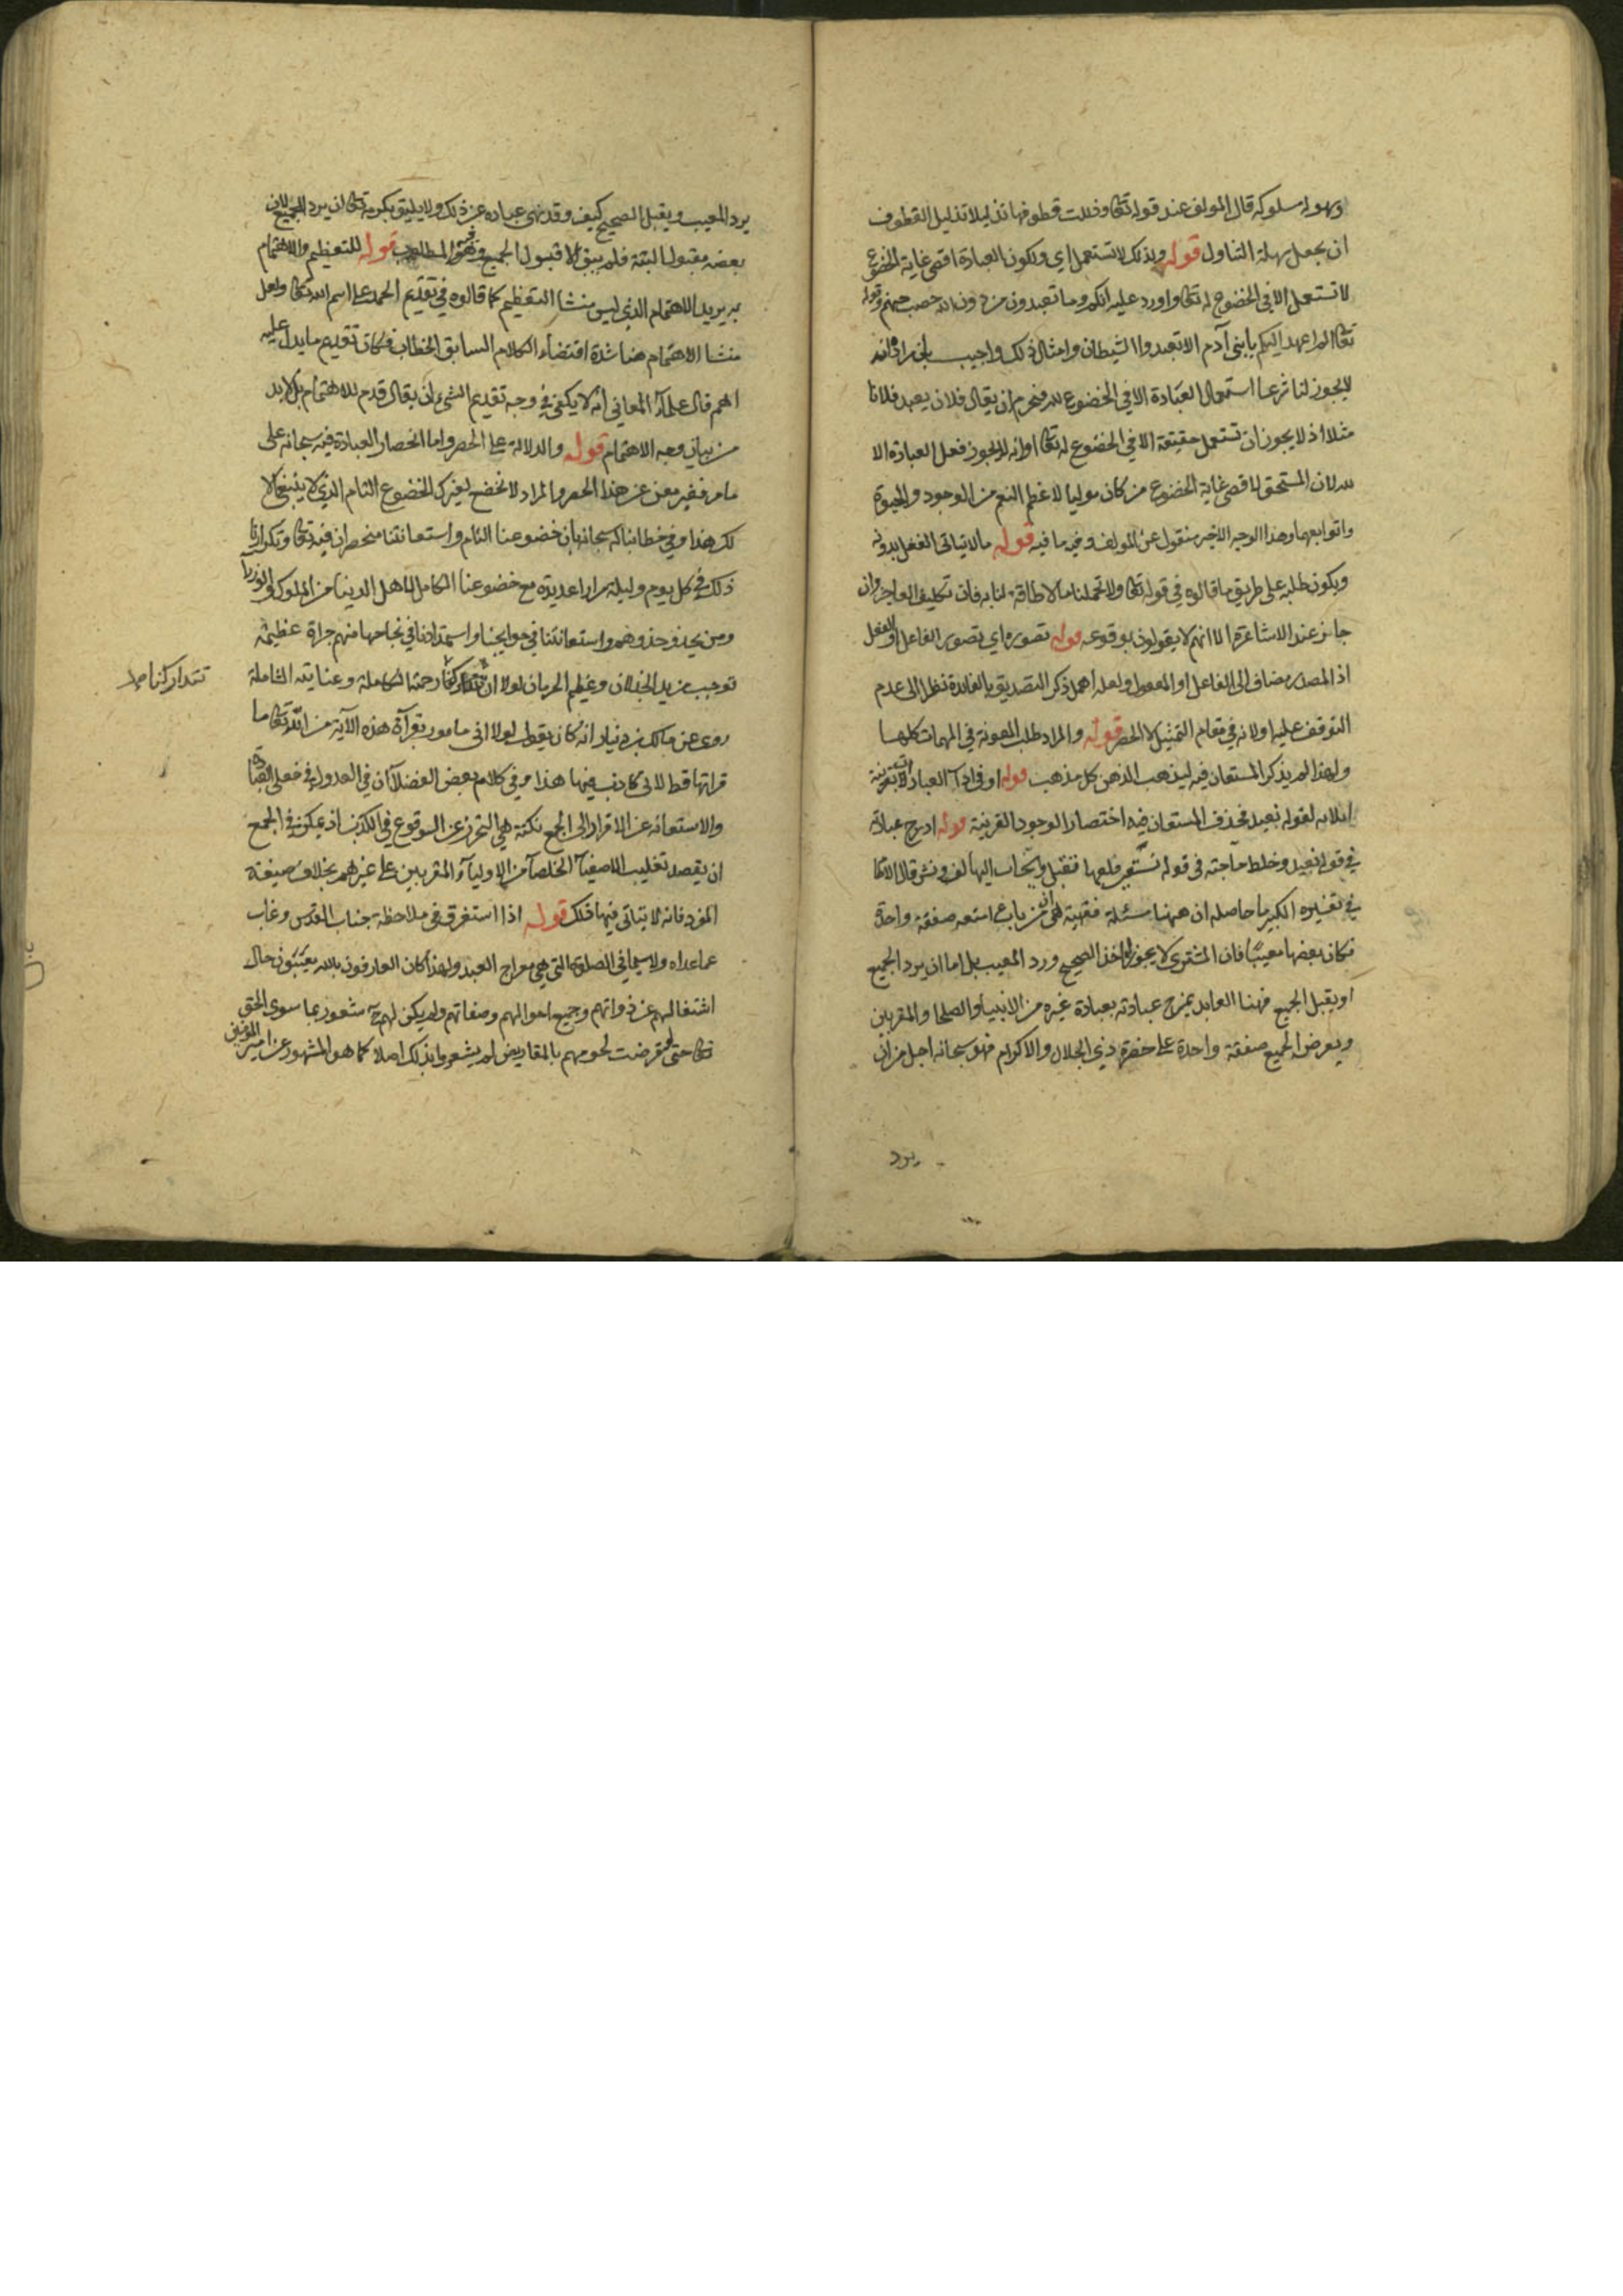 وسهولة سلوكه قال المولف عند قوله تعالى وذللت قطوفها تذليلا تذليل القطوف
ان يجعل سهلة التناول قوله ولذلك لا تستعمل اي ولكون العبادة اقصى غاية الخضوع
لا تستعمل الا في الخضوع له تعالى واورد عليه انكم وما تعبدون من دون الله حصب جهنم وقوله
تعالى الم اعهد اليكم يا بني آدم الا تعبدوا الشيطان وامثال ذلك واجيب بان المراد انه
لا يجوز لنا شرعا استعمال العبادة الا في الخضوع لله فيحرم ان يقال فلان يعبد فلانا
مثلا اذ لا يجوز ان تستعمل حقيقة الا في الخضوع له تعالى او انه لا يجوز فعل العبادة الا
لله لان المستحق لاقصى غاية الخضوع من كان موليا لاعظم النعم من الوجود والحيوة
وتوابعهما وهذا الوجه الاخير منقول عن المولف وفيه ما فيه قوله ما لا يتاتى الفعل بدونه
ويكون طلبه على طريق ما قالوه في قوله تعالى ولا تحملنا ما لا طاقة لنا به فان تكليف العاجز وان
جاز عند الاشاعرة الا انهم لا يقولون بوقوعه قوله تصوره اي تصور الفاعل او الفعل
اذ المصدر مضاف الى الفاعل او المفعول ولعله اهمل ذكر التصديق بالفايدة نظرا الى عدم
التوقف عليه اولانه في مقام التمثيل لا الحصر قوله والمراد طلب المعونة في المهمات كلها
ولهذا لم يذكر المستعان فيه ليذهب الذهن كل مذهب قوله او في اداء العبادات بقرينة
اتلائه لقوله نعبد فحذف المستعان فيه اختصارا لوجود القرينة قوله ادرج عبادته
في قوله نعبد وخلط حاجته في قوله نستعين فلعلها تقبل وتجاب اليها لف ونشر قال الامام
في تفسيره الكبير ما حاصله ان ههنا مسئلة فقهية هي ان من باع امتعة صفقة واحدة
فكان بعضها معيبا فان المشتري لا يجوز له اخذ الصحيح ورد المعيب بل اما ان يرد الجميع
او يقبل الجميع فهنا العابد يمزج عبادته بعبادة غيره من الانبياء والصلحا والمقربين
ويعرض الجميع صفقة واحدة على حضرة ذي الجلال والاكرام فهو سبحانه اجل من ان
يرد
يرد المعيب ويقبل الصحيح كيف وقد نهى عباده عن ذلك ولا يليق بكرمه تعالى ان يرد الجميع لان
بعضه مقبول البتة فلم يبق الا قبول الجميع وهو المطلوب قوله للتعظيم والاهتمام
به يريد الاهتمام الذي ليس منشا التعظيم كما قالوه في تقديم الحمد على اسم الله تعالى ولعل
منشا الاهتمام هنا شدة اقتضاء الكلام السابق الخطاب فكان تقديم ما يدل عليه
اهم قال علماء المعاني انه لا يكفي في وجه تقديم الشيء ان يقال قدم للاهتمام بل لا بد
من بيان وجه الاهتمام قوله والدلالة على الحصر واما انحصار العبادة فيه سبحانه على
ما مر فغير مغن عن هذا الحصر والمراد لا نخضع لغيرك الخضوع التام الذي لا ينبغي الا
لك هذا وفي خطابنا له سبحانه بان خضوعنا التام واستعانتنا منحصران فيه تعالى وتكرارنا
ذلك في كل يوم وليلة مرارا عديدة مع خضوعنا الكامل لاهل الدنيا من الملوك والوزراء
ومن يحذو حذوهم واستعانتنا في حوايجنا واستمدادنا في نجاحها منهم جراة عظيمة
توجب مزيد الخذلان وعظيم الحرمان لولا ان تتداركنا رحمته الكاملة وعنايته الشاملة
تتداركنا صح
روي عن مالك بن دينار انه كان يقول لولا اني مامور بقرآة هذه الآية من الله تعالى ما
قراتها قط لاني كاذب فيها هذا وفي كلام بعض الفضلاء ان في العدول في فعلي العبادة
والاستعانة عن الافراد الى الجمع نكتة هي التحرز عن الوقوع في الكذب اذ يمكن في الجمع
ان يقصد تغليب الاصفياء الخلصآء من الاولياء المقربين على غيرهم بخلاف صيغة
المفرد فانه لا يتاتى فيها ذلك قوله اذا استغرق في ملاحظة جناب القدس وغاب
عما عداه ولا سيما في الصلوة التي هي معراج العبد ولهذا كان العارفون بالله يغيبون حال
اشتغالهم عن ذواتهم وجميع احوالهم وصفاتهم ولم يكن لهم شعور بما سوى الحق
تعالى حتى لو قرضت لحومهم بالمقاريض لم يشعروا بذلك اصلا كما هو المشهور عن امير المؤمنين